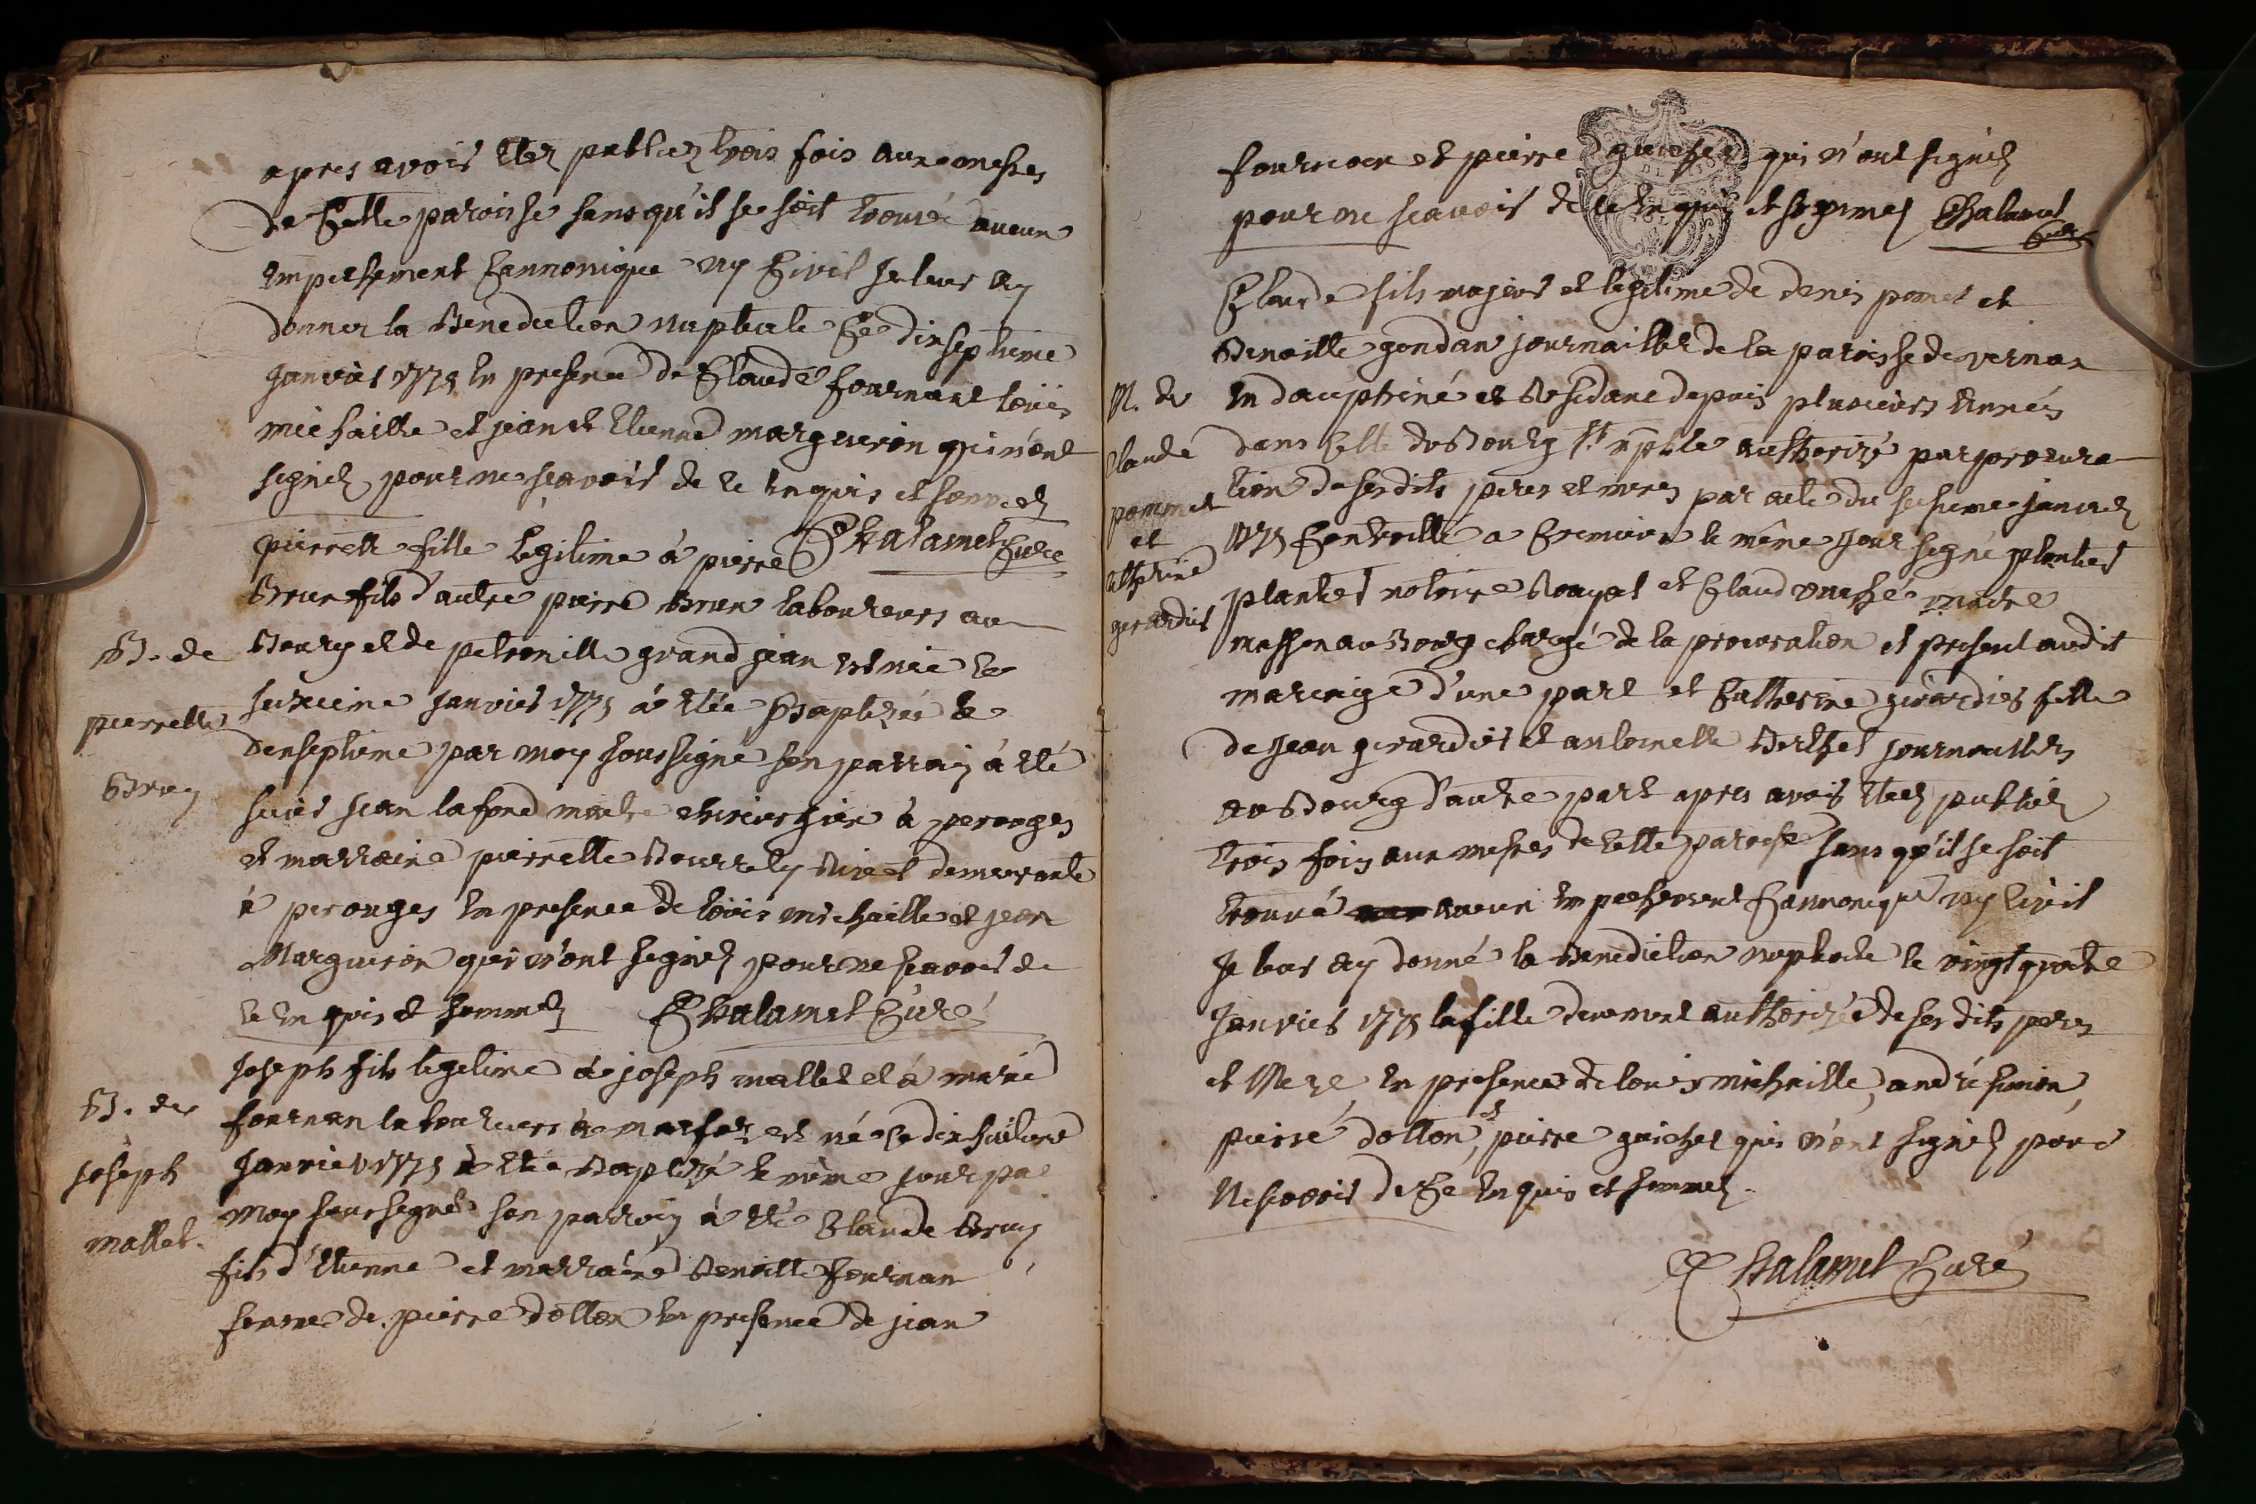 apres avoir étez publiez trois fois aux messes
de Cette paroisse sans qu'il se soit trouvé aucun
Empeschement Cannonique ny Civil Je leur ay
donner la Benediction nuptiale Ce dixseptieme
Janvier 1775 En presence de Claude fournant loüis
michaille et jean et Etienne marguiron qui n'ont
signéz pour ne sçavoir de ce Enquis et sommez
Chalamet Curé
B. de
pierrette
Brun
pierrette fille legitime à pierre
Brun fils d'autre pierre Brun laboureurs au
Bourg et de petronille grand jean Est née le
seizieme Janvier 1775 à Etée Baptizée le
dixseptieme par moy soussigné son parrain à été
sieur jean lafond maitre chirurgien à perouges
et marraine pierrette demeurante
à perouges En presence de loüis michaille et jean
Marguiron qui n'ont signéz pour ne sçavoir de
ce Enquis et sommez Chalamet Curé
B. de
Joseph
mallet.
Joseph fils legitime de joseph mallet et à marie
fournan laboureurs à est né Le dixhuitieme
Janvier 1775 à Eté Baptizé le même jour par
moy soussigné son parrain à été Claude Brun
fils d'Etienne et marraine Benoitte fournan
femme de pierre dotton En presence de jean
fournan et pierre guichet qui n'ont signéz
pour ne sçavoir de ce Enquis et sommez Chalamet
Curé
M. de
Claude
pommet
et
Catherine
girardier
Claude fils majeur et legitime de denis pomet et
Benoitte gondan journallier de la paroisse de vernas
En dauphiné et Residant depuis plusieurs Années
dans Celle du Bourg St authorizé par procura
tion de ses dits peres et meres par acte du seizieme janvier
1775 Controllé a Cremieu le même jour signé
notoire et Claud maitre
masson au Bourg chargé de la procuration et present audit
mariage d'une part et Catherine girardier fille
de Jean girardier et antoinette Berthet journalliers
au Bourg d'autre part apres avoir Eteez publiéz
trois fois aux messes de Cette paroisse sans qu'il se soit
trouvé aucun Empechement Cannonique ny Civil
Je leur ay donné la Benediction nuptiale le vingt quatre
Janvier 1775 la fille deuement authorizée de ses dits peres
et Mere En presence de loüis michaille, andré simon,
pierre dotton, et pierre guichet qui n'ont signéz pour
Ne sçavoir de Ce Enquis et sommez.
Chalamet Curé